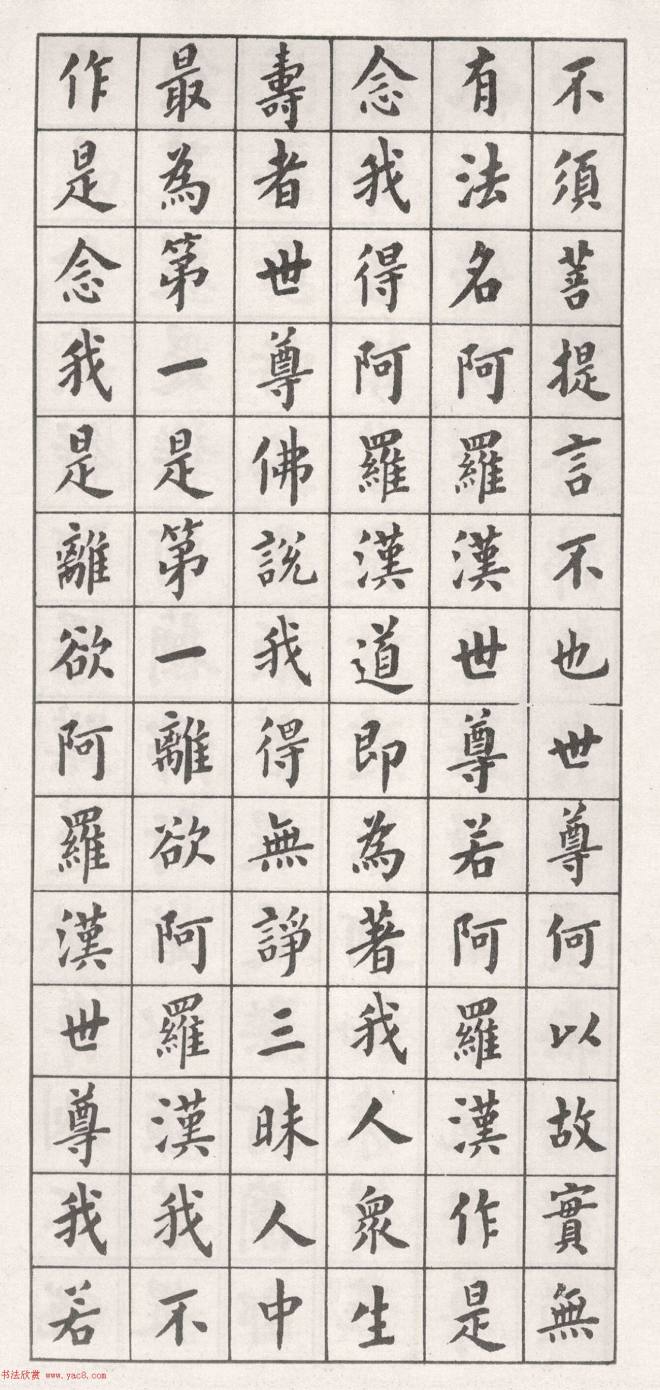 不須菩提言不也世尊何以故實無
有法名阿羅漢世尊若阿羅漢作是
念我得阿羅漢道即為著我人眾生
壽者世尊佛說我得無諍三昧人中
最為第一是第一離欲阿羅漢我不
作是念我是離欲阿羅漢世尊我若
书法欣赏 www.yac8.com